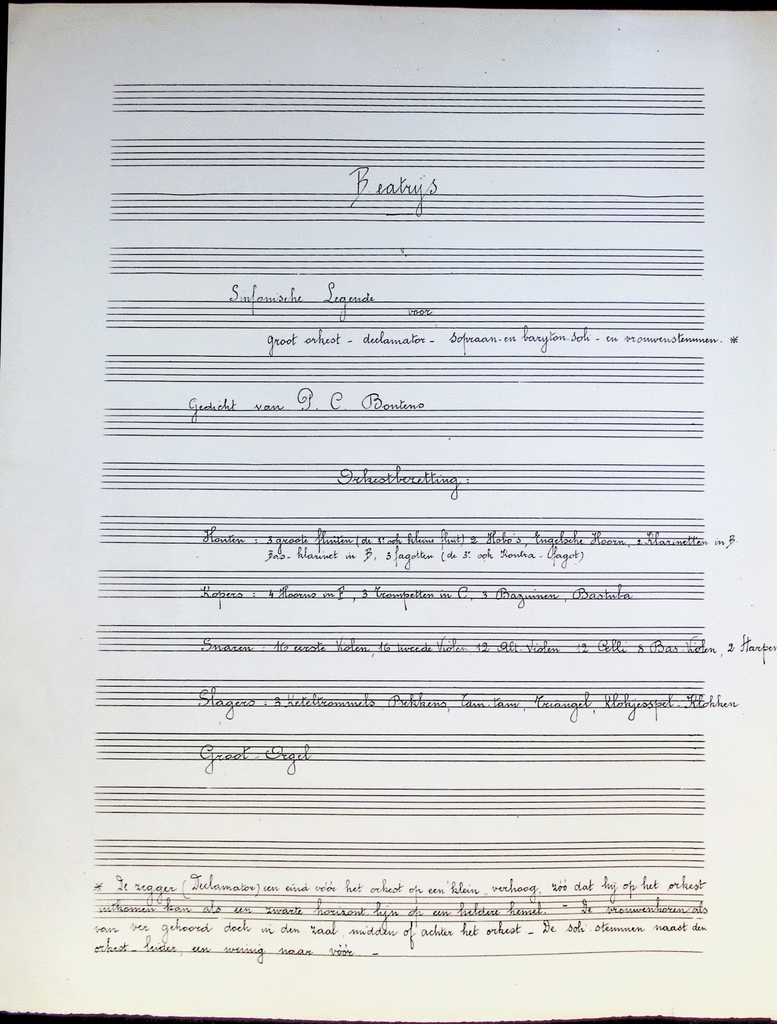 Beatrijs
Sinfonische Legende
voor
groot orkest - declamator - sopraan- en baryton-soli - en vrouwenstemmen. *
Gedicht van P. C. Boutens
Orkestbezetting:
Houten : 3 groote fluiten (de 3e ook kleine fluit) 2 Hobo's, Engelsche Hoorn, 2 Klarinetten in B.
Bas-klarinet in B, 3 fagotten (de 3e ook Kontra-fagot)
Kopers : 4 Hoorns in F, 3 Trompetten in C, 3 Bazuinen, Bastuba
Snaren : 16 eerste Violen, 16 tweede Violen 12 Alt-Violen 12 Celli 8 Bas-Violen, 2 Harpen
Slagers : 3 Keteltrommels Bekkens, Tam-tam, Triangel, Klokjesspel - Klokken
Groot-Orgel
* De zegger (Declamator) een eind vóór het orkest op een klein verhoog, zóó dat hij op het orkest
uitkomen kan als een zwarte horizont lijn op een heldere hemel. - De vrouwenkoren als
van ver gehoord doch in den zaal, midden of achter het orkest - De soli-stemmen naast den
orkest-leider, een weinig naar vóór. -